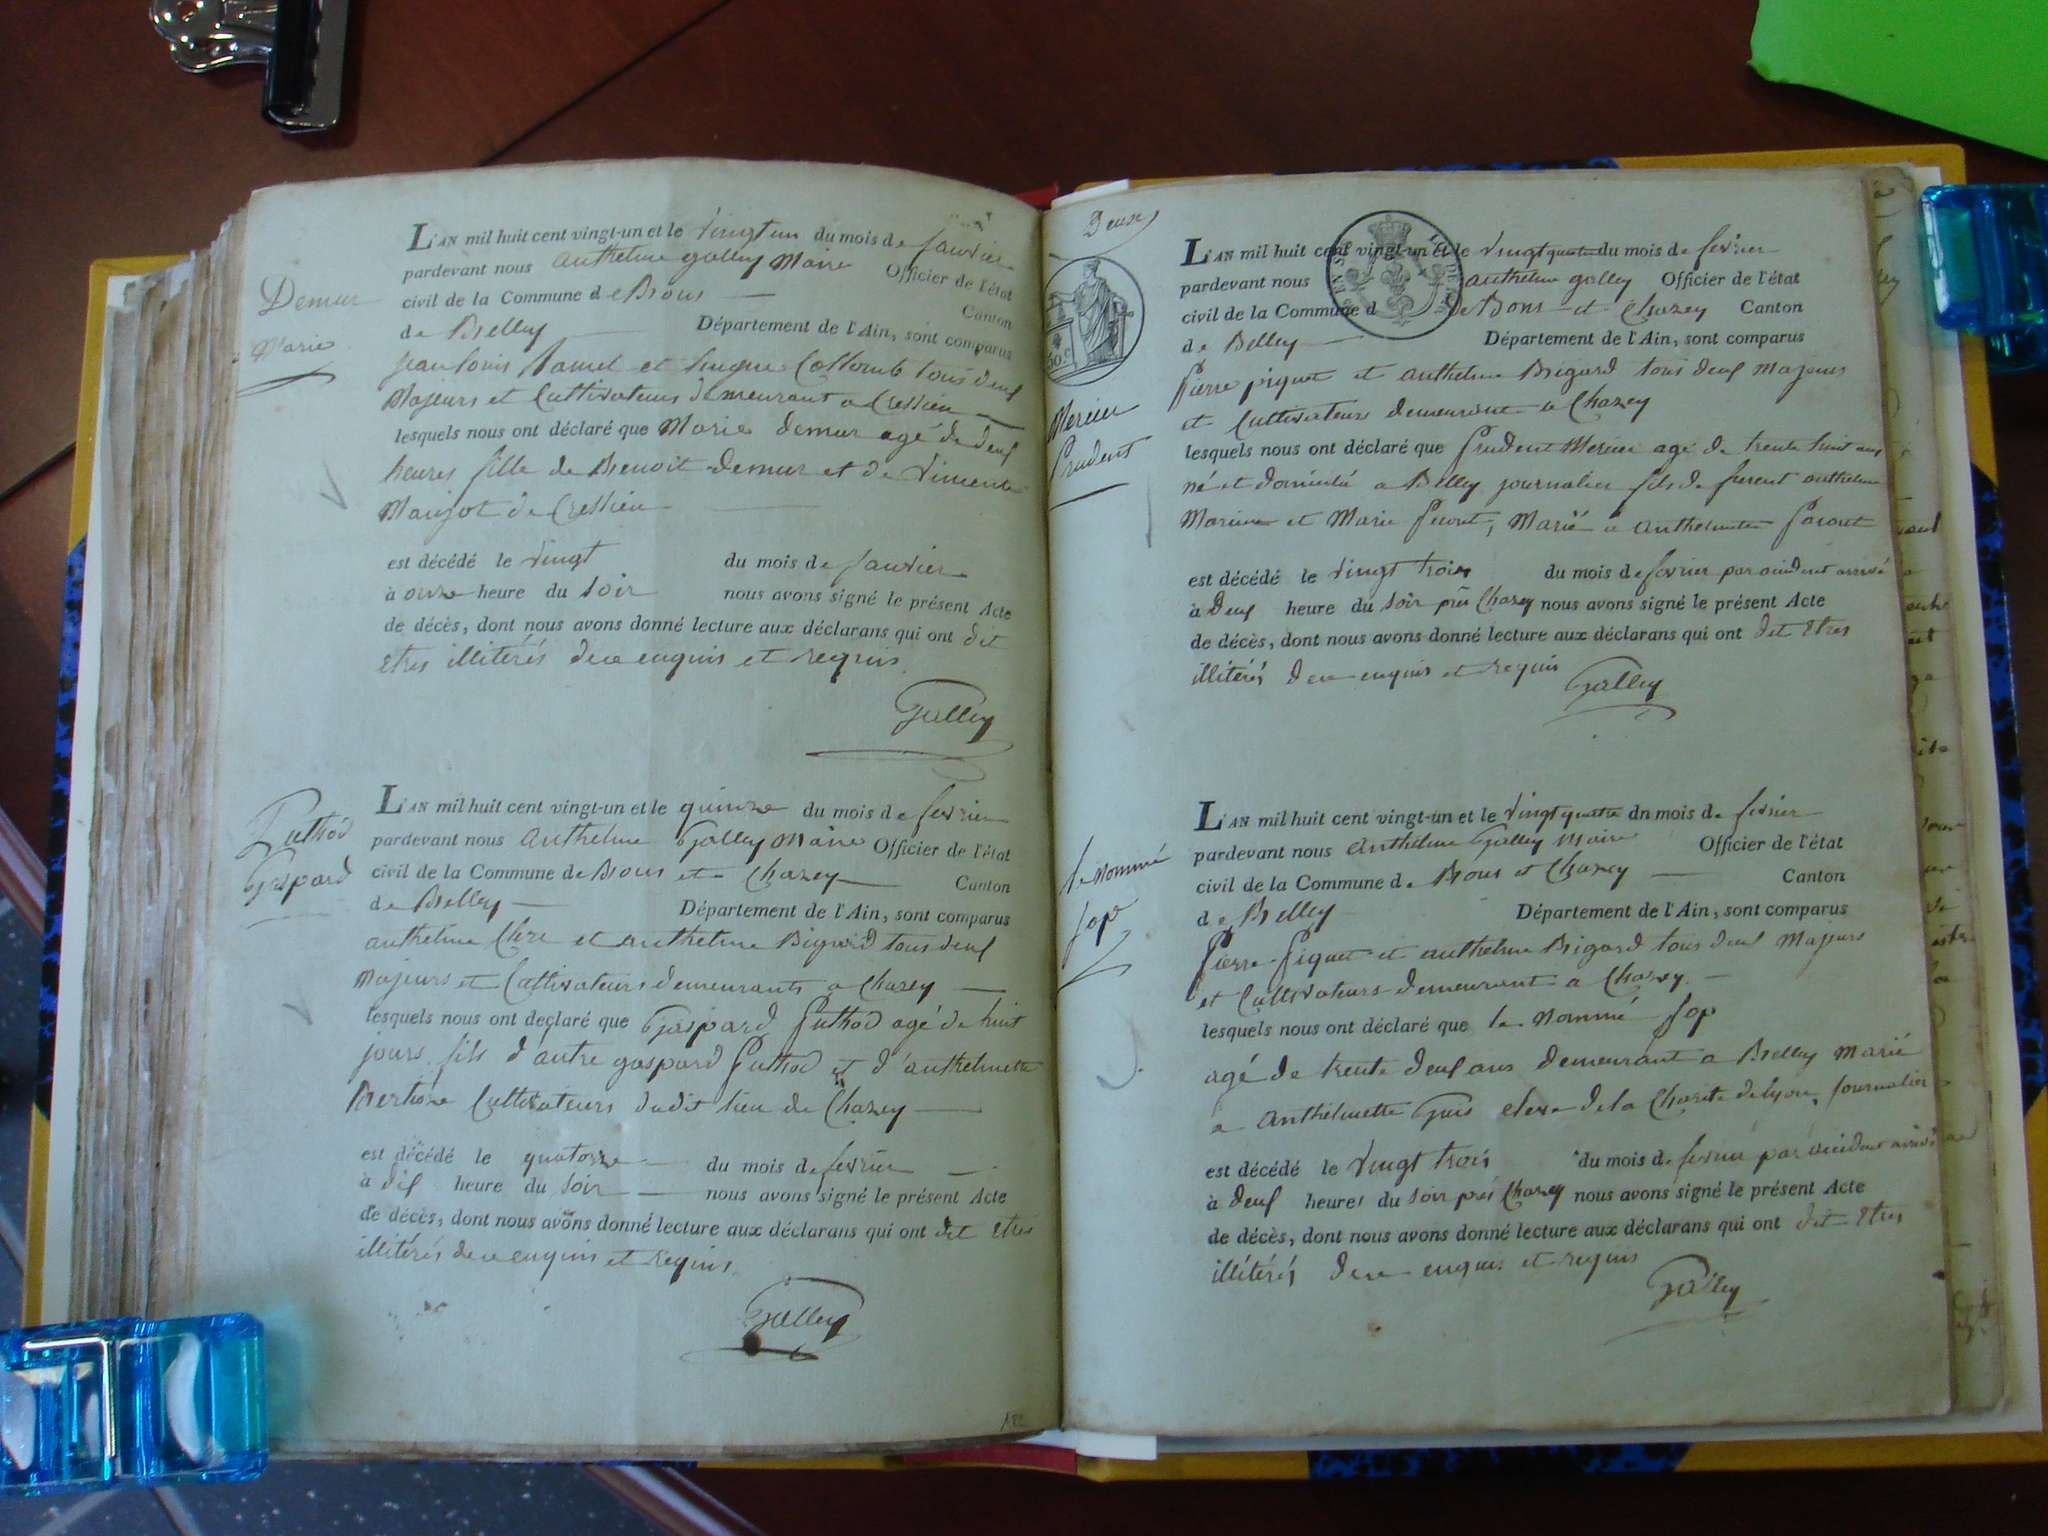 Demur
Marie
L'AN mil huit cent vingt-un et le vingt un du mois de janvier
pardevant nous anthelme golley Maire Officier de l'état
civil de la Commune de Bons Canton
de Belley Département de l'Ain, sont comparus
jean louis et Collomb tous deux
Majeurs et Cultivateurs demeurant a Cressieu
lesquels nous ont déclaré que Marie demur agé de deux
heures fille de Benoit demur et de
de Cressieu
est décédé le vingt du mois de janvier
à onze heure du soir nous avons signé le présent Acte
de décès, dont nous avons donné lecture aux déclarans qui ont dit
etres illitérés de ce enquis et requis
Golley
Puthod
Gaspard
L'AN mil huit cent vingt-un et le quinze du mois de fevrier
pardevant nous anthelme Golley Maire Officier de l'état
civil de la Commune de Bons et Chazey Canton
de Belley Département de l'Ain, sont comparus
anthelme et anthelme Bigard tous deux
Majeurs et Cultivateurs demeurants a Chazey
lesquels nous ont declaré que Gaspard Puthod agé de huit
jours fils d'autre gaspard Puthod et d'anthelmette
Cultivateurs dudit lieu de Chazey
est décédé le quatorze du mois de fevrier
à dix heure du soir nous avons signé le présent Acte
de décès, dont nous avons donné lecture aux déclarans qui ont dit etres
illitérés de ce enquis et requis
Golley
Deux
50 c
Mercier
Prudent
L'AN mil huit cent vingt-un et le vingt quatre du mois de fevrier
pardevant nous anthelme golley Officier de l'état
civil de la Commune d de Bons et Chazey Canton
de Belley Département de l'Ain, sont comparus
Pierre piquet et anthelme Brigard tous deux Majeurs
et Cultivateurs demeurant a Chazey
lesquels nous ont déclaré que Prudent Mercier agé de trente huit ans
né et domicilié a Belley journalier fils de anthelme
et Marie Marié a anthelmette
est décédé le vingt trois du mois de fevrier par accident arrivé
à Deux heure du soir près Chazey nous avons signé le présent Acte
de décès, dont nous avons donné lecture aux déclarans qui ont dit etres
illitérés de ce enquis et requis
Golley
le nommé
fop
L'AN mil huit cent vingt-un et le vingt quatre dn mois de fevrier
pardevant nous anthelme Golley Maire Officier de l'état
civil de la Commune de Bons et Chazey Canton
de Belley Département de l'Ain, sont comparus
Pierre Piquet et anthelme Brigard tous deux Majeurs
et Cultivateurs demeurant a Chazey
lesquels nous ont déclaré que le nommé fop
agé de trente deux ans demeurant a Belley Marié
a Anthelmette eleve de la Charité de lyon, journalier
est décédé le vingt trois du mois de fevrier par accident arrivé
à deux heures du soir près Chazey nous avons signé le présent Acte
de décès, dont nous avons donné lecture aux déclarans qui ont dit etres
illitérés de ce enquis et requis
Golley